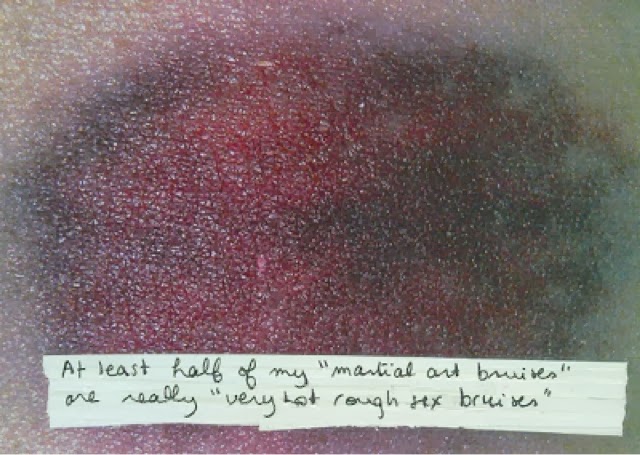 At least half of my "martial art bruises"
are really "very hot rough sex bruises"